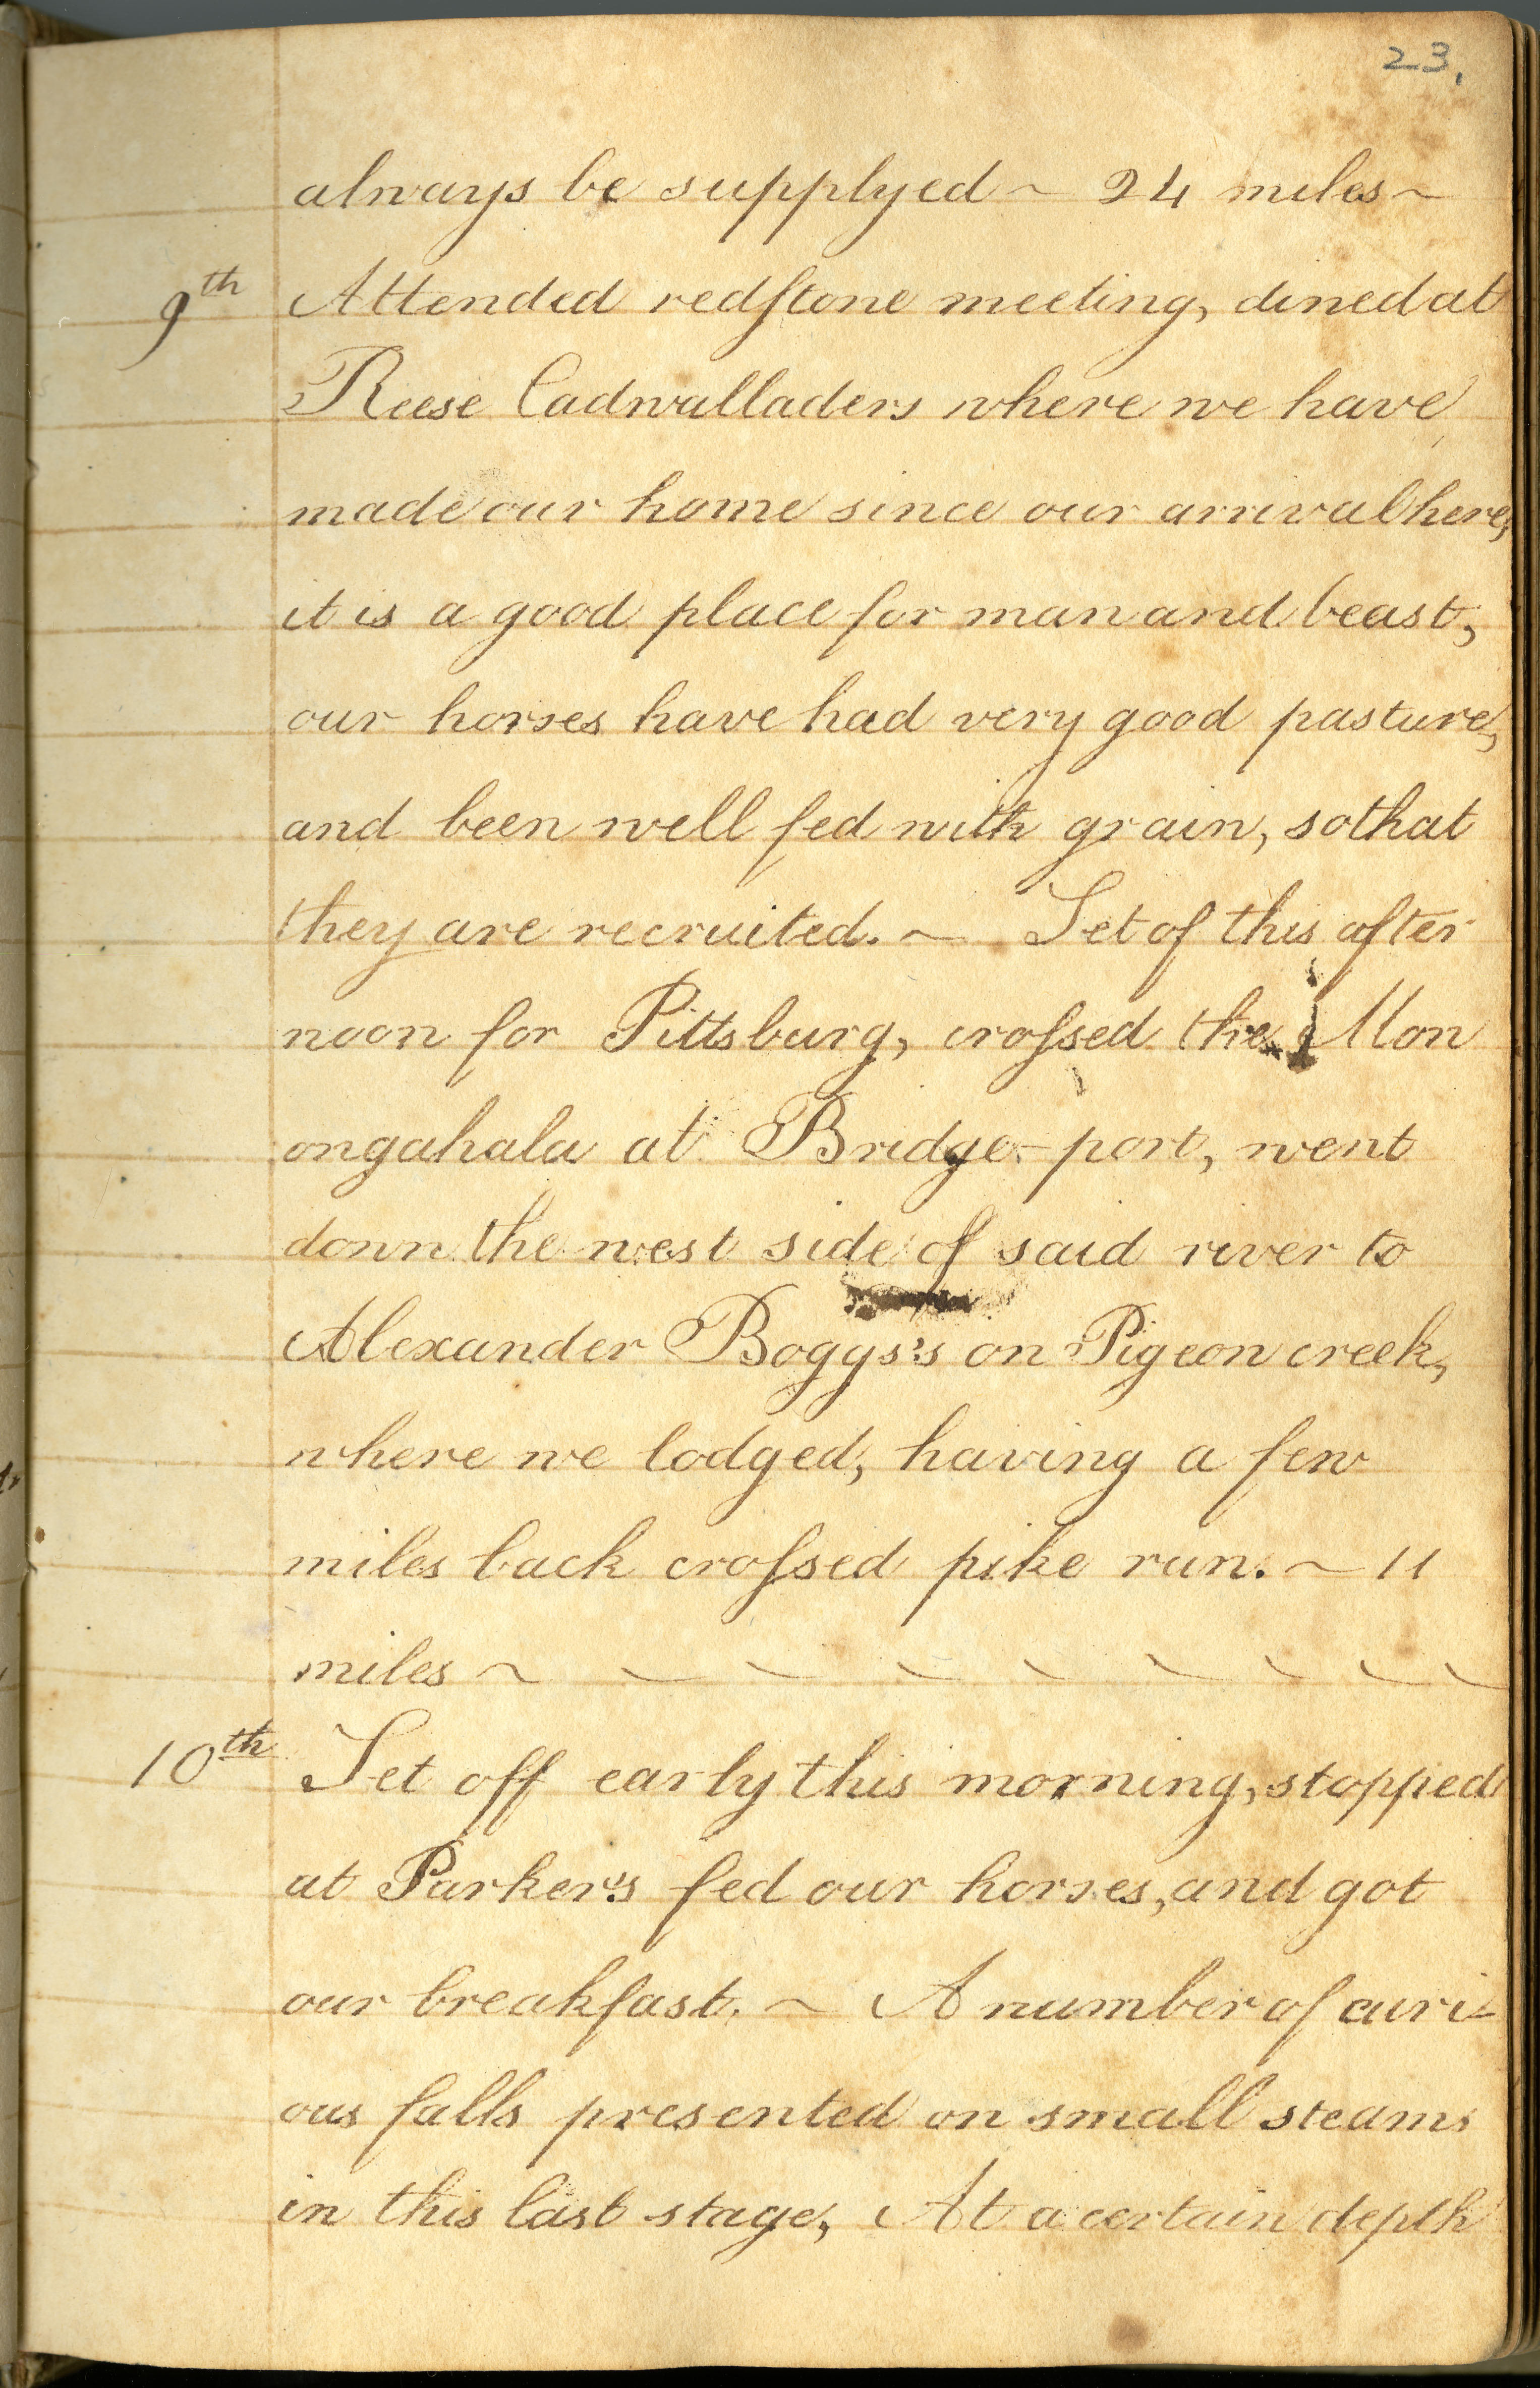 23.
always be supplyed ~ 24 miles ~
9th Attended redſtone meeting, dined at
Reese Cadwalladers where we have
made our home since our arrival here,
it is a good place for man and beast,
our horses have had very good pasture,
and been well fed with grain, so that
they are recruited. ~ Set of this after
noon for Pittsburg, croſsed the Mon
ongahala at Bridge-port, went
down the west side of said river to
Alexander Boggs's on Pigeon creek,
where we lodged, having a few
miles back croſsed pike run. ~ 11
miles ~ ~ ~ ~ ~ ~ ~ ~ ~
10th Set off early this morning, stopped
at Parker's fed our horses, and got
our breakfast. ~ A number of curi-
ous falls presented on small steams
in this last stage, At a certain depth